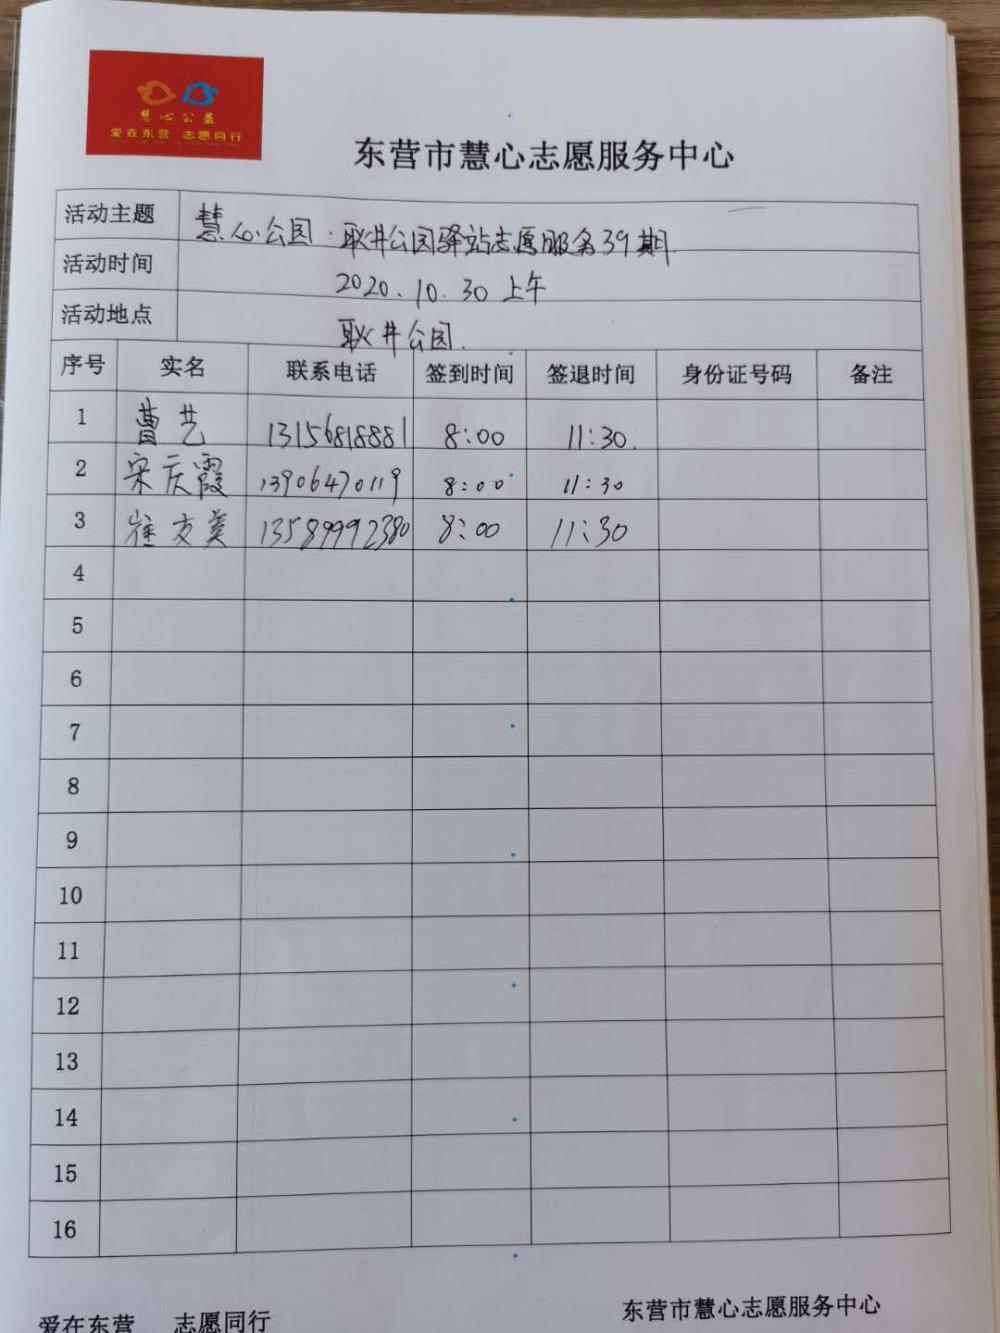 慧心公益
爱在东营 志愿同行
东营市慧心志愿服务中心
活动主题 慧心公园：耿井公园驿站志愿服务39期.
活动时间 2020.10.30上午
活动地点 耿井公园.
序号 实名 联系电话 签到时间 签退时间 身份证号码 备注
1 曹艺 13156818881 8:00 11:30.
2 宋庆霞 13906470119 8:00 11:30
3 崔方 13589992380 8:00 11:30
4
5
6
7
8
9
10
11
12
13
14
15
16
爱在东营 志愿同行 东营市慧心志愿服务中心